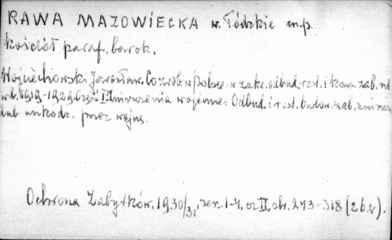 RAWA MAZOWIECKA w. Łódzkie m.p.
kościół paraf., barok.
Wojciechowski Jarosław: Co zrobiono w Polsce w zakr. odbud. rest. i kons. zab. szt.
w l. 1919-1929. Cz. I. Zniszczenia wojenne. Odbud. i rest. budow. zab. zniszcz.
lub uszkodz. przez wojnę.
Ochrona Zabytków. 1930/31, zesz. 1-4, cz. II, str. 273-318 (z b.z).